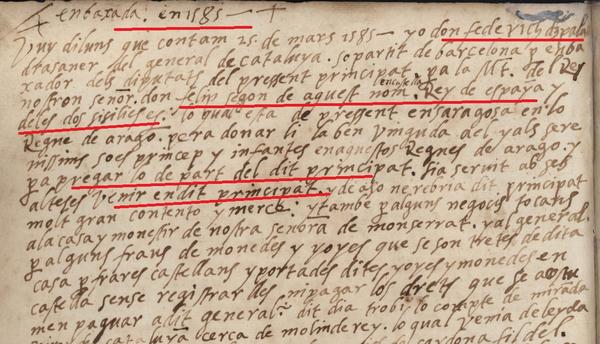 enbaxada. en 1585
Vuy diluns que contam 25. de mars 1585 — yo don federich despala
drasaner del general de cataluya. so partit de barcelona p enba
xador dels diputats del pressent principat. pa la Mt. del Rey
nostron senor. don felip segon de aquest nom. en castella Rey de espaya y
de les dos sisilies. lo qual esta de pressent ensaragosa en lo
Regne de arago. pera donar li la ben vinguda del y als sere
nissims sos princep y infantes en aquestos Regnes de arago. y
pa pregar lo de part del dit principat. sia servit ab ses
alteses venir en dit principat. y de aso ne rebria dit principat
molt gran contento y merce. y tambe p alguns negocis tocans
a la casa y monestir de nostra senora de monserrat. y al general.
p alguns fraus de monedes y yoyes que se son tretes de dita
casa p frares castellans y portades dites yoyes y monedes en
castella sense registrar les ni pagar los drets que se
men paguar a dit general. dit dia trobi lo compte de miranda
cerca de molin de rey. lo qual venia de leyda